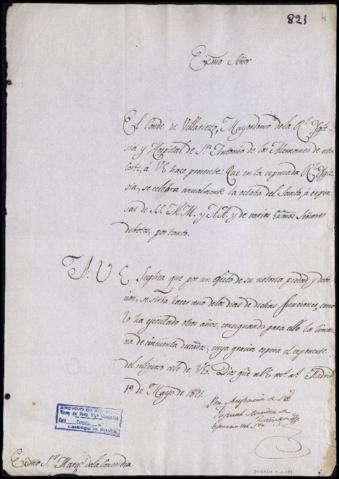 821
Exmo Señor
El Conde de Villariezo, Mayordomo de la Rl. Igle-
sia y Hospital de Sn. Antonio de los Alemanes de esta
Corte, á V.E. hace presente: Que en la expresada Rl. Igle-
sia, se celebra anualmente la octava del Santo, á expen-
sas de SS. M.M. y A.A. y de varios Exmos Señores
devotos, por tanto.
A V.E. Suplica que por un efecto de su notoria piedad y devo-
cion, se sirva hacer uno de los dias de dichas funciones, como
lo ha ejecutado otros años, consignando para ello la limosna
de cincuenta ducados; cuya gracia espera el exponente
del religioso celo de V.E. Dios gue á V.E. ms. as. Madrid
1º de Mayo de 1821.
Exmo Sr. Marqs.